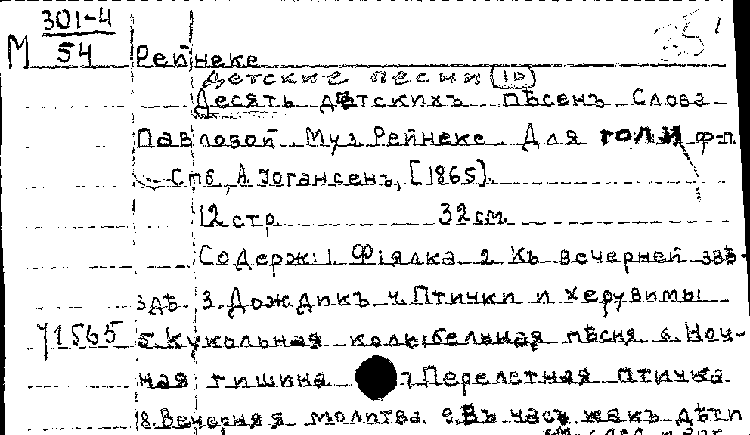 301-4
М 54
Рейнеке
Детские песни (10)
Десять дѣтскихъ пѣсенъ Слова
Павловой Муз. Рейнеке Для голи ф-п.
Спб, А. Іогансенъ, [1865].
12 стр. 32 см.
Содерж: 1. Фіялка 2. Къ вечерней звѣ-
здѣ. 3. Дождикъ 4. Птички и херувимы
71565 5. Кукольная колыбельная пѣсня 6. Ноч-
ная тишина 7. Перелетная птичка
8. Вечерняя молитва. 9. Въ часъ какъ дѣти